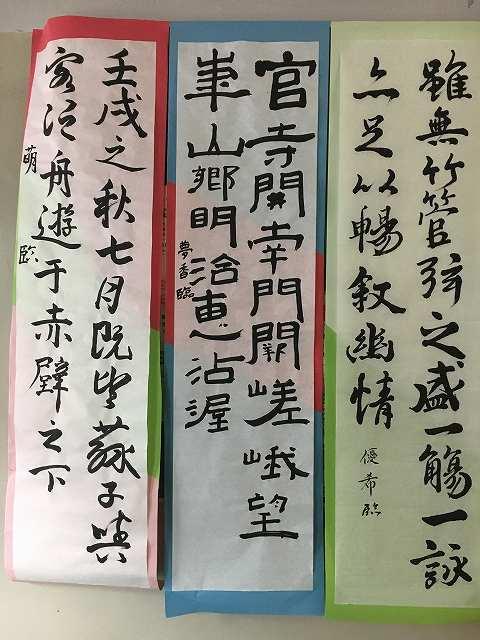 雖無竹管弦之盛一觴一詠
亦足以暢叙幽情
優希臨
官寺開南門闕嵯峨望
華山鄉明治惠沾渥
夢香臨
壬戌之秋七月既望蘇子與
客泛舟遊于赤壁之下
萌臨